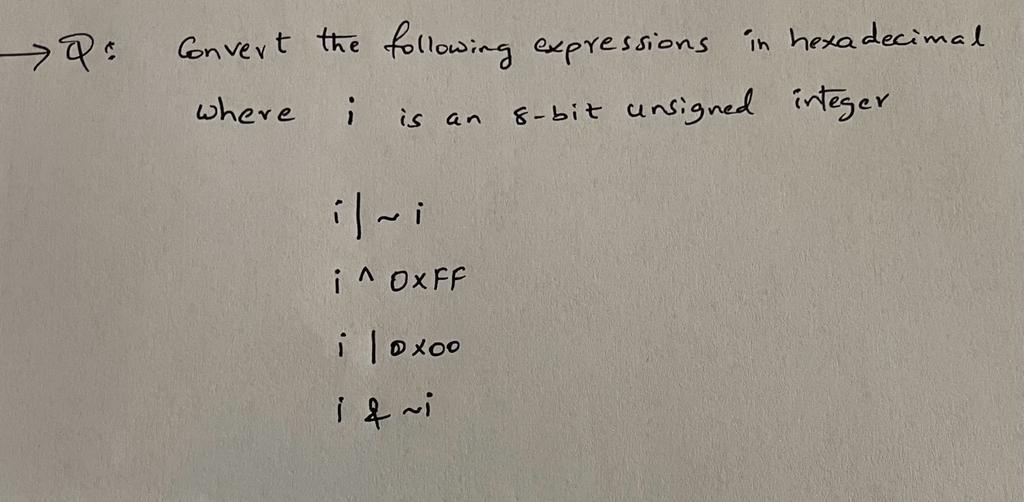 → Q: Convert the following expressions in hexadecimal
where i is an 8-bit unsigned integer
i | ~ i
i ^ 0xFF
i | 0x00
i & ~i